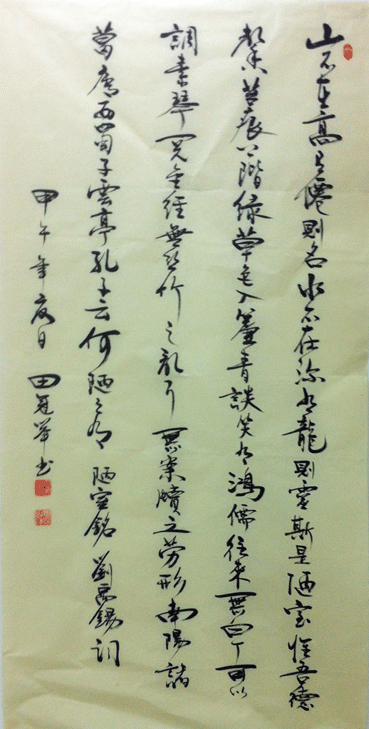 山不在高有僊則名水不在深有龍則靈斯是陋室惟吾德
馨苔痕上階綠草色入簾青談笑有鴻儒往來無白丁可以
調素琴閱金經無絲竹之亂耳無案牘之勞形南陽諸
葛廬西蜀子雲亭孔子云何陋之有 陋室銘 劉禹錫詞
甲午年夏日 田冠舉書